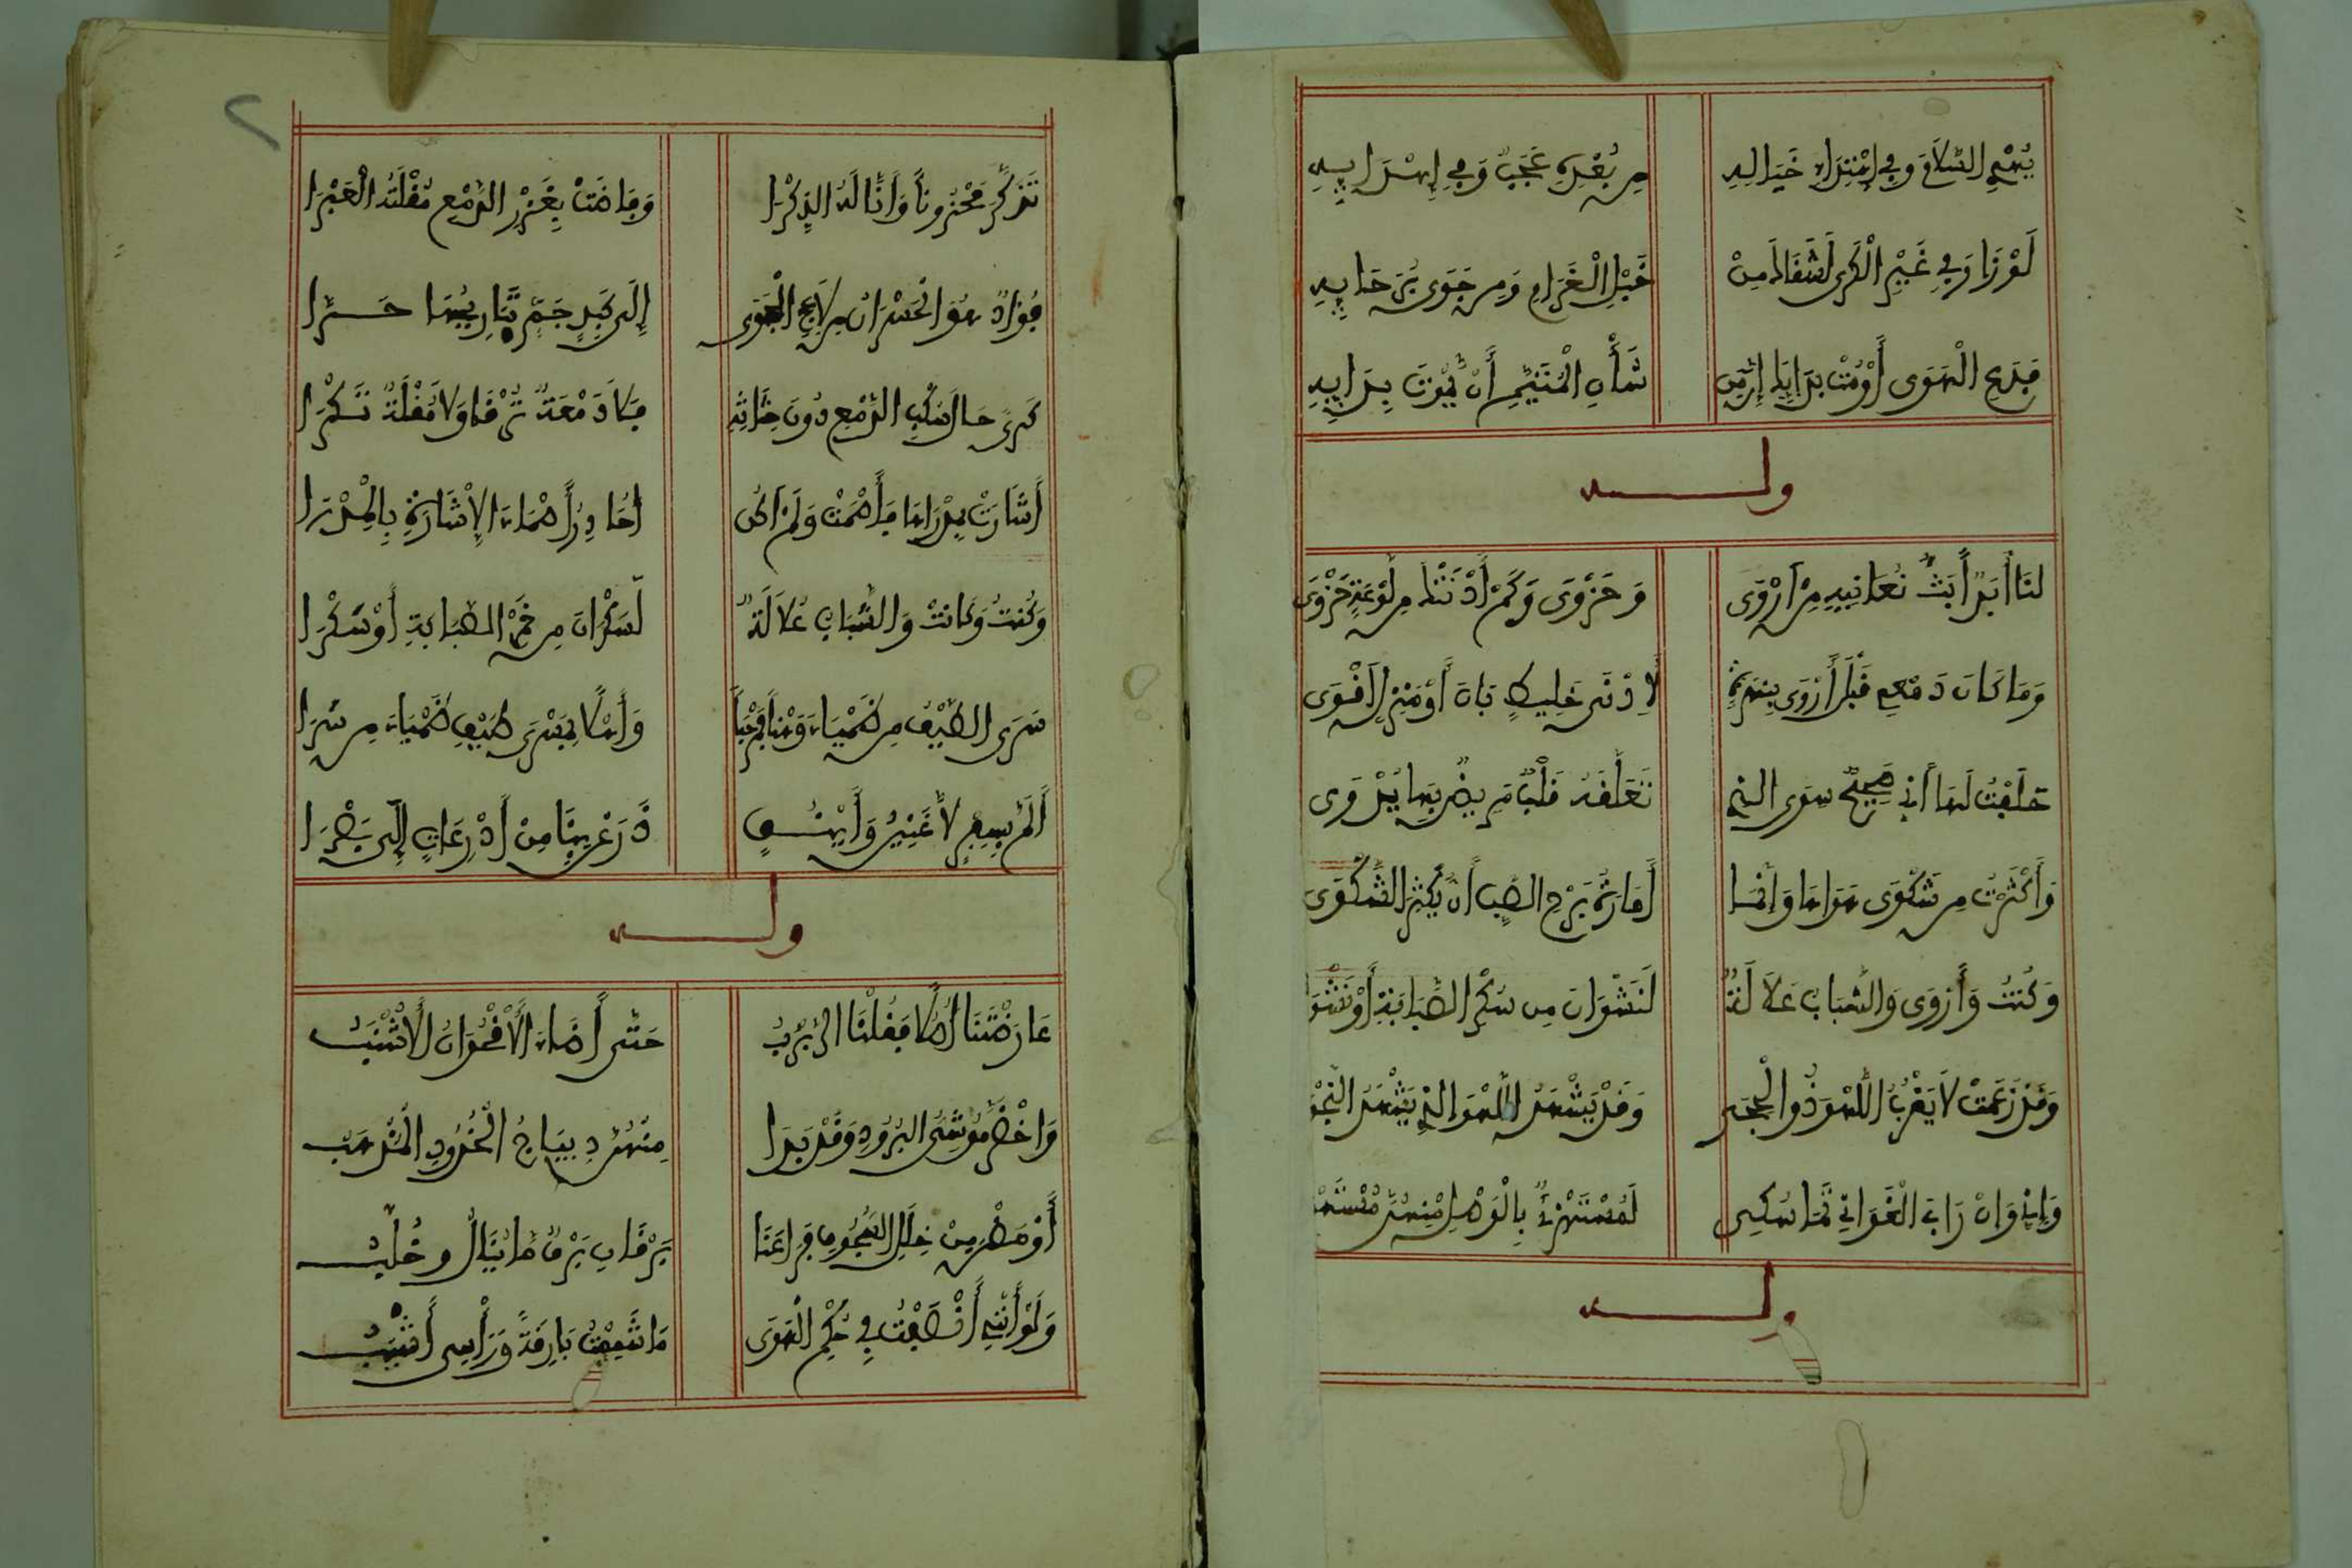 يُهْدِي السَّلَامَ وَفِي اهْتِدَاءِ خَيَالِهِ مِن بُعْدِهِ عَجَبٌ وَفِي إِسْرَايِهِ
لَوْ زَارَ فِي غَيْرِ الْكَرَى لَشَفَاكَ مِنْ خَبْلِ الْغَرَامِ وَمِن جَوَى بُرَحَايِهِ
فَدَعِ الْهَوَى أَوْ مُتْ بِدَايِكَ إِنَّ مِن شَأْنِ الْمُتَيَّمِ أَن يَّمُوتَ بِدَايِهِ
وله
لَنَا أَبَدًا بَثٌّ نُعَانِيهِ مِنْ أَرْوَى وَحَزْوَى وَكَمْ أَدْنَتْكَ مِن لَّوْعَةٍ حَزْوَى
وَمَا كَانَ دَمْعِي قَبْلَ أَرْوَى بِنُهْزَةٍ لِأَدْنَى خَلِيطٍ بَانَ أَوْ مَنْزِلٍ أَقْوَى
حَلَفْتُ لَهَا أَنِّي صَحِيحٌ سِوَى الذِي تَعَلَّقَهُ قَلْبٌ مَرِيضٌ بِهَا يَدْوَى
وَأَكْثَرْتُ مِن شَكْوَى هَوَاهَا وَإِنَّمَا أَمَارَةُ بَرْحِ الْحُبِّ أَن يَّكْثُرَ الشَّكْوَى
وَكُنتُ وَأَرْوَى وَالشَّبَابُ عُلَالَةٌ لَنَشْوَانَ مِن سُكْرِ الصَّبَابَةِ أَوْ نَشْوَ
وَقَدْ زَعَمَتْ لَا يَقْرُبُ اللَّهْوَ ذُو الْحِجَى وَقَدْ يَشْهَدُ اللَّهْوَ الذِي يَشْهَدُ النَّجْوَ
وَإِنِّي وَإِنْ رَابَ الْغَوَانِي تَمَاسُكِي لَمُسْتَهْتَرٌ بِالْوَصْلِ مِنْهُنَّ مُسْتَهْ
وله
تَذَكَّرَ مَحْزُونًا وَأَنَّى لَهُ الذِّكْرَا وَفَاضَتْ بِغُزْرِ الدَّمْعِ مُقْلَتُهُ الْعَبْرَا
فُؤَادٌ هُوَ الْحَرَّانُ مِن لَّاعِجِ الْجَوَى إِلَى كَبِدٍ جَمٍّ تَبَارِيحُهَا حَرَّا
كَرًى حَالَ سَكْبُ الدَّمْعِ دُونَ حِثَاثِهِ فَلَا دَمْعَةٌ تَرْقَا وَلَا مُقْلَةٌ تَكْرَا
أَشَارَتْ بِمِدْرَاهَا فَأَصْمَتْ وَلَمْ أَكُن أُحَاذِرُ أَصْمَاءَ الْإِشَارَةِ بِالْمِدْرَا
وَكُنتُ وَكَانَتْ وَالشَّبَابُ عُلَالَةٌ لَسَكْرَانَ مِن خَمْرِ الصَّبَابَةِ أَوْ سَكْرَا
سَرَى الطَّيْفُ مِن ظَمْيَاءَ وَهْنًا فَمَرْحَبًا وَأَهْلًا بِمَسْرَى طَيْفِ ظَمْيَاءَ مِن سَرَا
أَلَمَّ بِسَفْرٍ لَّاغِبِينَ وَأَيْنُقٍ ذَرَعْنَ بِنَا مِنْ أَذْرِعَاتٍ إِلَى بُصْرَا
وله
عَارَضْنَنَا أُصُلًا فَقُلْنَا الرَّبْرَبُ حَتَّى أَضَاءَ الْأُقْحُوَانُ الْأَشْنَبُ
وَاخْضَرَّ مَوْشِيُّ الْبُرُودِ وَقَدْ بَدَا مِنْهُنَّ دِيبَاجُ الْخُدُودِ الْمُذْهَبُ
أَوْمَضْنَ مِنْ خِلَلِ السُّجُوفِ فَرَاعَنَا بَرْقَانِ بَرْقٌ مَا يُنَالُ وخُلَّبُ
وَلَوْ أَنَّنِي أَنْصَفْتُ فِي حُكْمِ الْهَوَى مَا شِمْتُ بَارِقَةً وَرَأْسِي أَشْيَبُ